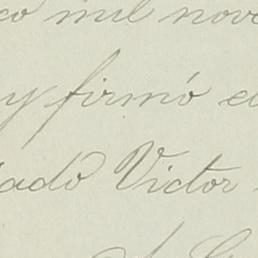 co mil nove
y firmó el
tado Victor